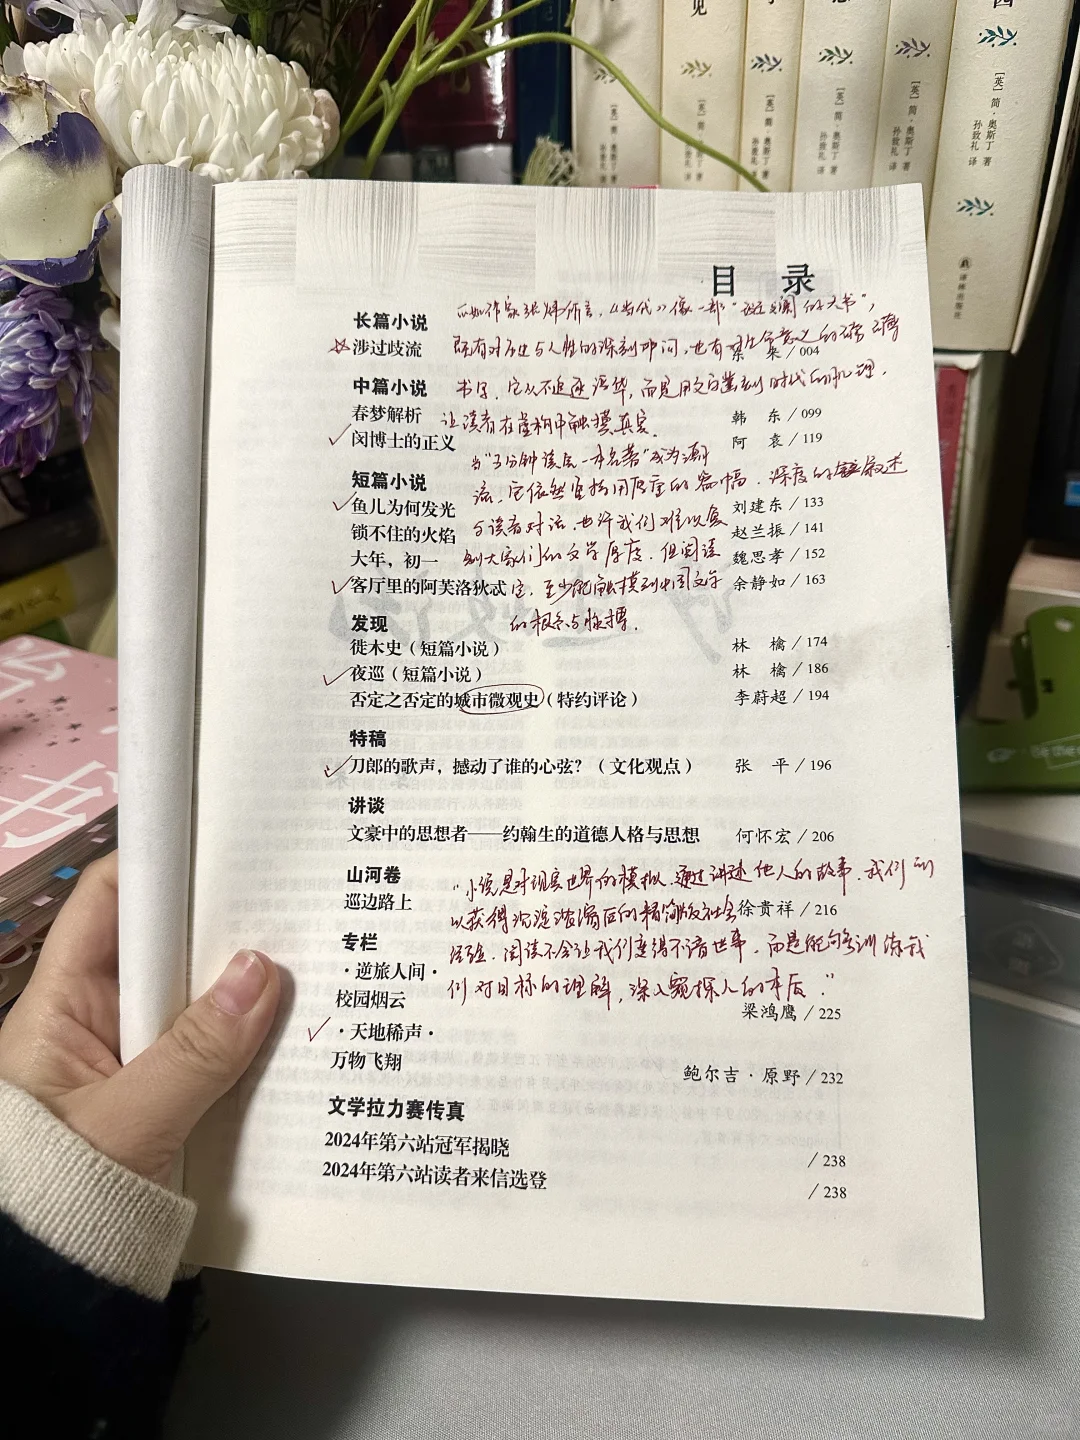 [英]简·奥斯丁 著
孙致礼 译
[英]简·奥斯丁 著
孙致礼 译
[英]简·奥斯丁 著
孙致礼 译
[英]简·奥斯丁 著
孙致礼 译
译林出版社
目 录
正如作家张炜所言,《当代》像一部"斑斓的大书",
长篇小说
涉过歧流 / 004
既有对历史与人性的深刻叩问,也有对生命意义的
中篇小说
书写。它从不追逐浮华,而是用文字雕刻时代的肌理,
春梦解析 韩 东 / 099
让读者在虚构中触摸真实。
闵博士的正义 阿 袁 / 119
当"三分钟读完一本名著"成为潮
短篇小说
流,它依然坚持用厚重的篇幅、深度的叙述
鱼儿为何发光 刘建东 / 133
与读者对话,也许我们难以复
锁不住的火焰 赵兰振 / 141
刻大家们的文学厚度,但阅读
大年,初一 魏思孝 / 152
客厅里的阿芙洛狄忒 余静如 / 163
它,至少能触摸到中国文学
的根系与脉搏。
发现
徙木史(短篇小说) 林 檎 / 174
夜巡(短篇小说) 林 檎 / 186
否定之否定的城市微观史(特约评论) 李蔚超 / 194
特稿
刀郎的歌声,撼动了谁的心弦?(文化观点) 张 平 / 196
讲谈
文豪中的思想者——约翰生的道德人格与思想 何怀宏 / 206
山河卷
"小说是对现实世界的模拟,通过讲述他人的故事,我们可
巡边路上 徐贵祥 / 216
以获得沉淀浓缩后的精简版社会
专栏
经验。阅读不会让我们变得不谙世事,而是能够训练我
·逆旅人间·
们对目标的理解,深入窥探人的本质。"
校园烟云 梁鸿鹰 / 225
·天地稀声·
万物飞翔 鲍尔吉·原野 / 232
文学拉力赛传真
2024年第六站冠军揭晓 / 238
2024年第六站读者来信选登 / 238